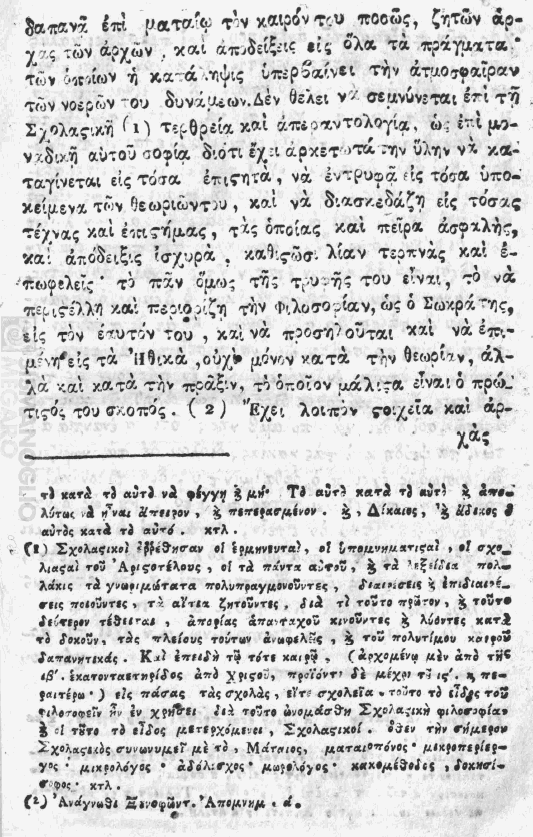 δαπανᾷ ἐπὶ ματαίῳ τὸν καιρόν του ποσῶς, ζητῶν ἀρ-
χὰς τῶν ἀρχῶν, καὶ ἀποδείξεις εἰς ὅλα τὰ πράγματα
τῶν ὁποίων ἡ κατάληψις ὑπερβαίνει τὴν ἀτμοσφαῖραν
τῶν νοερῶν του δυνάμεων. Δὲν θέλει νὰ σεμνύνεται ἐπὶ τῇ
Σχολαϛικῇ (1) τερθρείᾳ καὶ ἀπεραντολογίᾳ, ὡς ἐπὶ μο-
ναδικῇ αὐτοῦ σοφίᾳ διότι ἔχει ἀρκετωτάτην ὕλην νὰ κα-
ταγίνεται εἰς τόσα ἐπιϛητὰ, νὰ ἐντρυφᾷ εἰς τόσα ὑπο-
κείμενα τῶν θεωριῶν του, καὶ νὰ διασκεδάζῃ εἰς τόσας
τέχνας καὶ ἐπιϛήμας, τὰς ὁποίας καὶ πεῖρα ἀσφαλὴς,
καὶ ἀπόδειξις ἰσχυρὰ, καθιϛῶσι λίαν τερπνὰς καὶ ἐ-
πωφελεῖς· τὸ πᾶν ὅμως τῆς τρυφῆς του εἶναι, τὸ νὰ
περιϛέλλῃ καὶ περιορίζῃ τὴν Φιλοσοφίαν, ὡς ὁ Σωκράτης,
εἰς τὸν ἑαυτόν του, καὶ νὰ προσηλοῦται καὶ νὰ ἐπι-
μένῃ εἰς τὰ Ἠθικὰ, οὐχὶ μόνον κατὰ τὴν θεωρίαν, ἀλ-
λὰ καὶ κατὰ τὴν πρᾶξιν, τὸ ὁποῖον μάλιϛα εἶναι ὁ πρώ-
τιϛός του σκοπός. (2) Ἔχει λοιπὸν ϛοιχεῖα καὶ ἀρ-
χὰς
τὸ κατὰ τὸ αὐτὸ νὰ φέγγῃ ϗ μή· Τὸ αὐτὸ κατὰ τὸ αὐτὸ ϗ ἀπο-
λύτως νὰ ἦναι ἄπειρον, ϗ πεπερασμένον. ϗ, Δίκαιος, ϗ ἄδικος ὁ
αὐτὸς κατὰ τὸ αὐτό. κτλ.
(1) Σχολαϛικοὶ ἐῤῥέθησαν οἱ ἑρμηνευταὶ, οἱ ὑπομνηματιϛαὶ, οἱ σχο-
λιαϛαὶ τοῦ Ἀριϛοτέλους, οἱ τὰ πάντα αὐτοῦ, ϗ τὰ λεξείδια πολ-
λάκις τὰ γνωριμώτατα πολυπραγμονοῦντες, διαιρέσεις ϗ ἐπιδιαιρέ-
σεις ποιοῦντες, τὰ αἴτια ζητοῦντες, διὰ τί τοῦτο πρῶτον, ϗ τοῦτο
δεύτερον τέθειται, ἀπορίας ἁπανταχοῦ κινοῦντες ϗ λύοντες κατὰ
τὸ δοκοῦν, τὰς πλείους τούτων ἀνωφελῆς, ϗ τοῦ πολυτίμου καιροῦ
δαπανητικάς. Καὶ ἐπειδὴ τῷ τότε καιρῷ, (ἀρχομένῳ μὲν ἀπὸ τῆς
ιβ΄. ἑκατονταετηρίδος ἀπὸ Χριϛοῦ, προϊόντι δὲ μέχρι τῆς ιϛ΄. ϗ πε-
ραιτέρω·) εἰς πάσας τὰς σχολὰς, εἴτε σχολεῖα τοῦτο τὸ εἶδος τοῦ
φιλοσοφεῖν ἦν ἐν χρήσει διὰ τοῦτο ὠνομάσθη Σχολαϛικὴ φιλοσοφία
ϗ οἱ τοῦτο τὸ εἶδος μετερχόμενοι, Σχολαϛικοί. ὅθεν τὴν σήμερον
Σχολαϛικὸς συνωνυμεῖ μὲ τὸ, Μάταιος, ματαιοπόνος· μικροπερίερ-
γος· μικρολόγος· ἀδόλεσχος· μωρολόγος· κακομέθοδες, δοκησί-
σοφος· κτλ.
(2) Ἀνάγνωθι Ξενοφῶντ. Ἀπομνημ. ά.